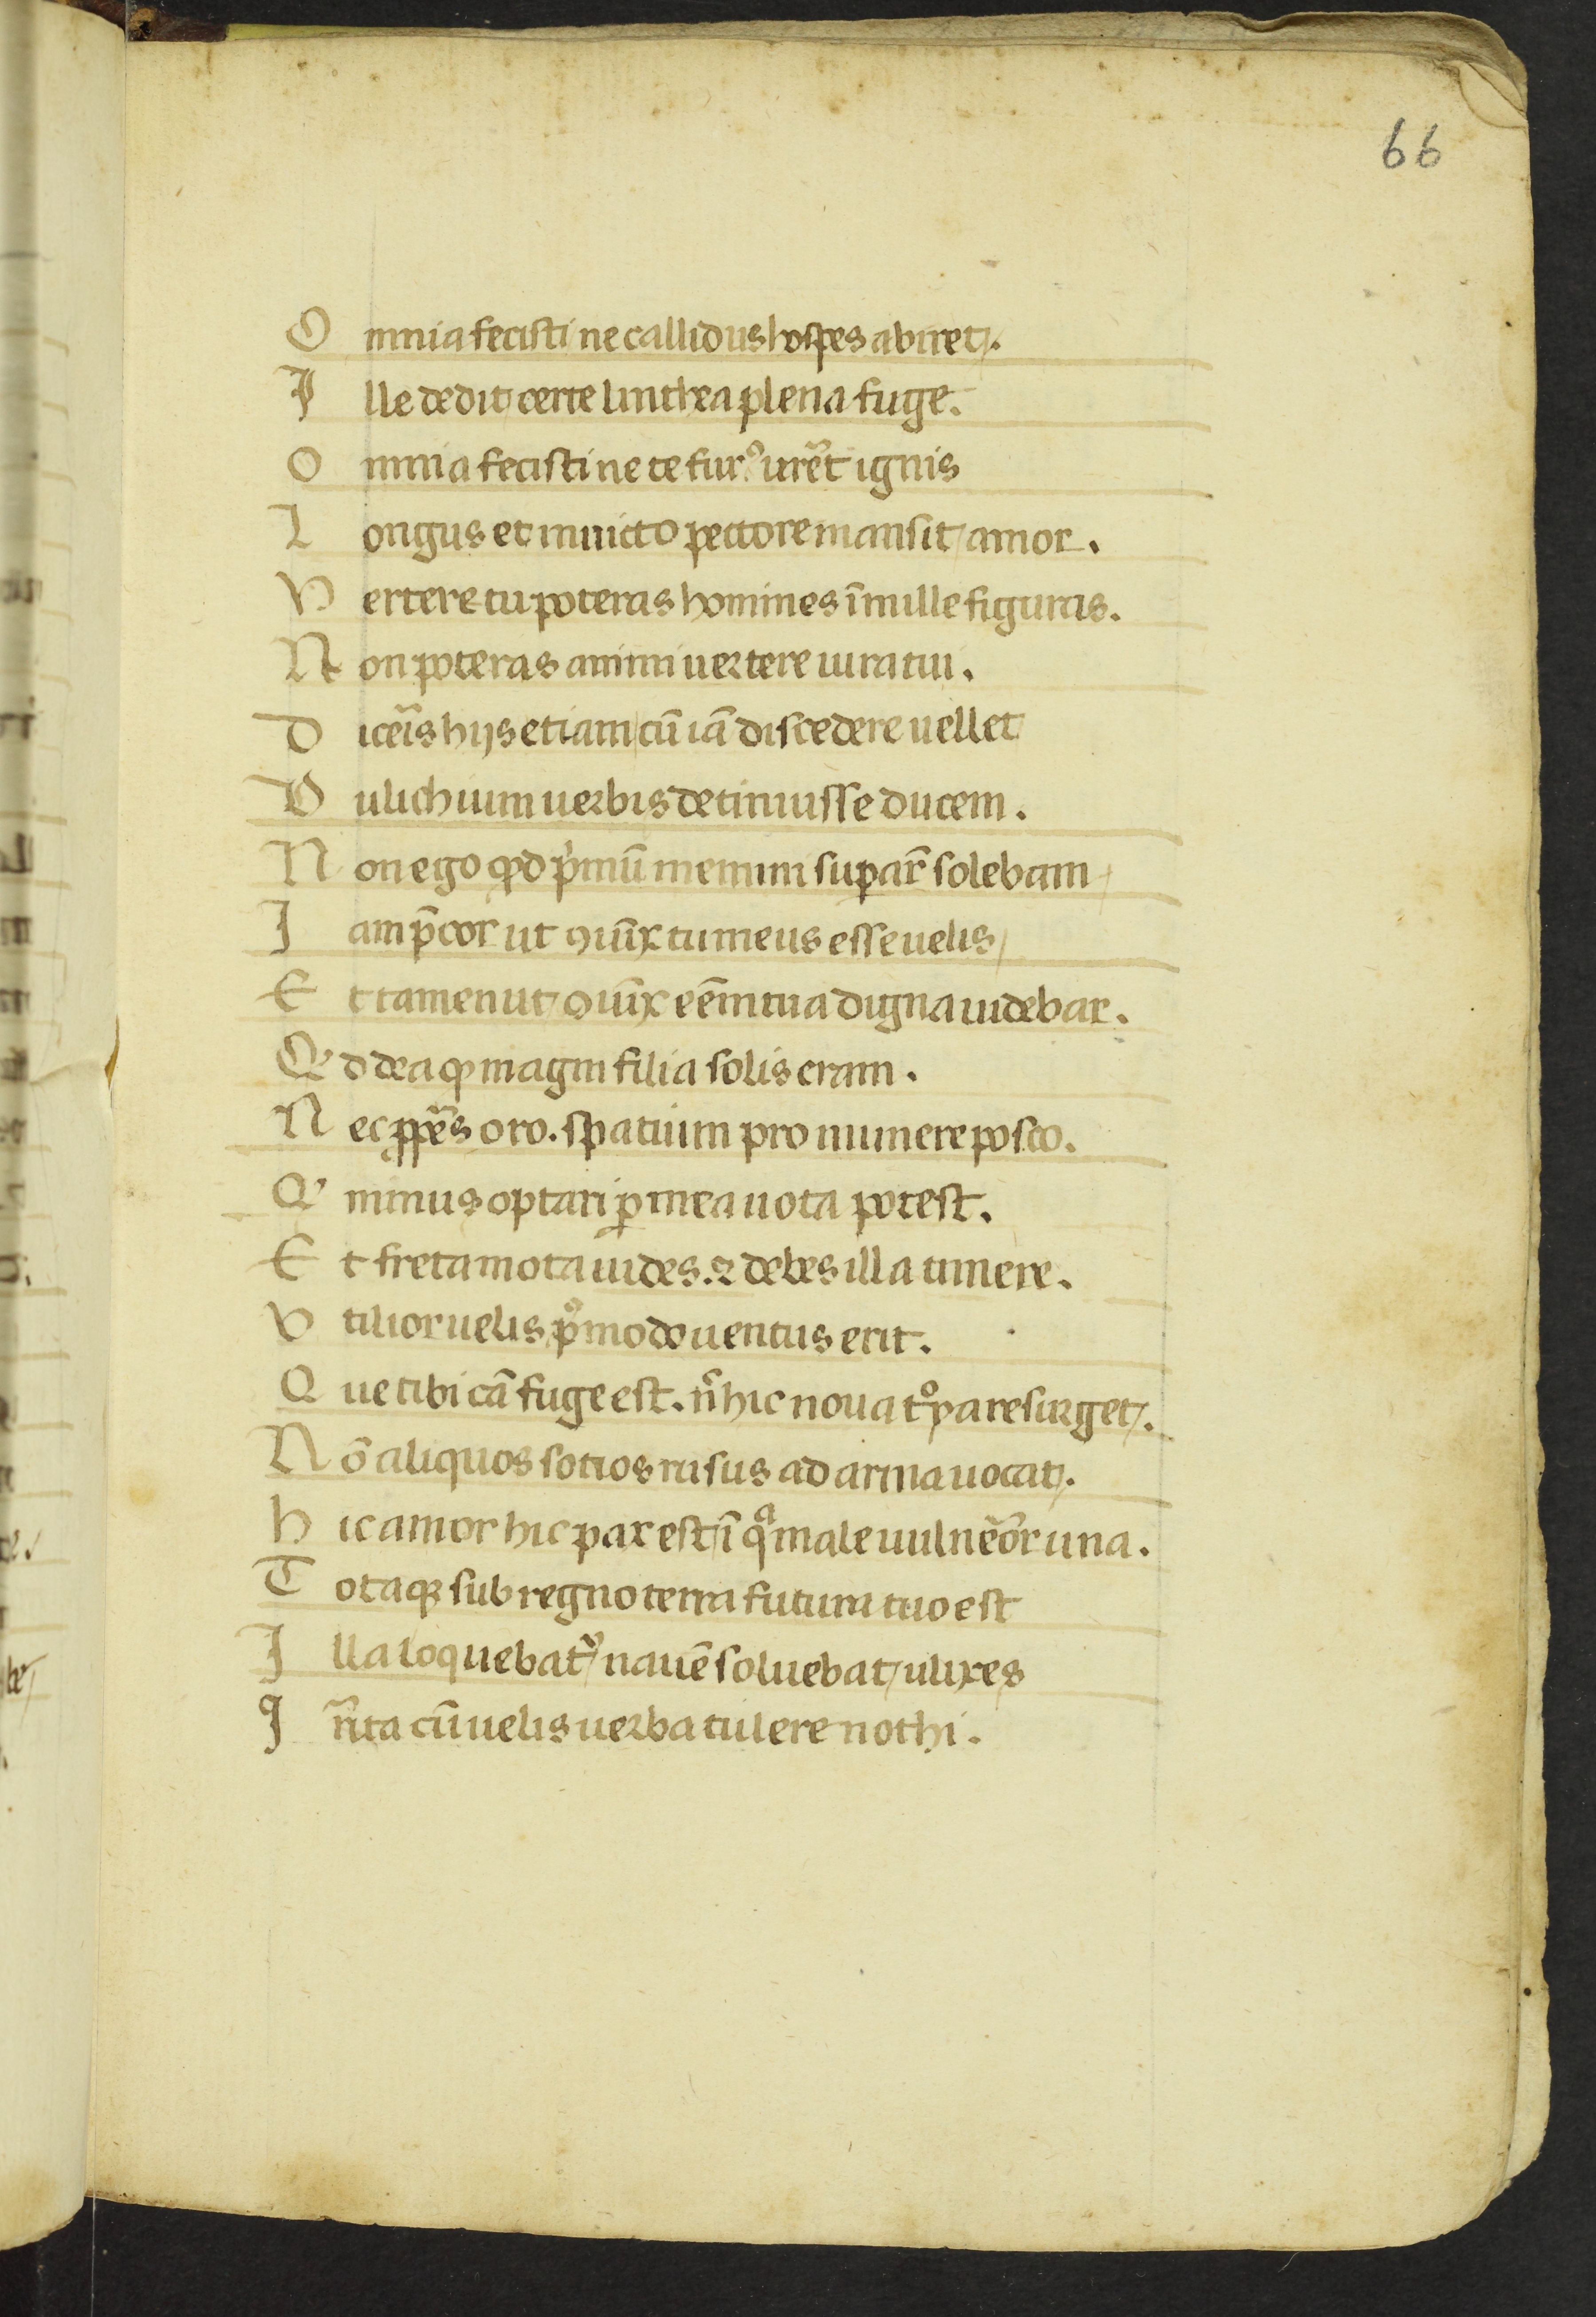 66
O mnia fecisti ne callidus hospes abiret/.
I lle dedit/ certe linthea plena fuge.
O mnia fecisti ne te fur⁹ uret̃ ignis
L ongus et in inuicto pectore mansit/ amor.
V ertere tu poteras homines ĩ mille figuras.
N on poteras animi uertere iura tui.
D iceris hijs etiam/ cũ iã discedere uellet
D ulichium uerbis detinuisse ducem.
N on ego qđ p̃mũ memini suꝑar̃ solebam/
I am p̃cor ut ꝯiũx tu meus esse uelis/
E t tamen ut/ ꝯiũx eẽm tua digna uidebar.
Q' d dea ꝙ magni filia solis eram.
N ec ꝓꝑes oro. spatium pro munere posco.
Q' minus optari ꝑ mea uota potest.
E t freta mota uides. ⁊ debes illa timere.
V tilior uelis p°modo uentus erit.
Q ue tibi cã fuge est. ñ hic noua t°ya resurget/.
N õ aliquos sotios rusus ad arma uocat/.
h ic amor hic pax est/ ĩ qª male uulneõr una.
T otaqꝫ sub regno terra futura tuo est
I lla loquebat᷑/ nauẽ soluebat/ ulixes
I rr̃ita cũ uelis uerba tulere nothi.